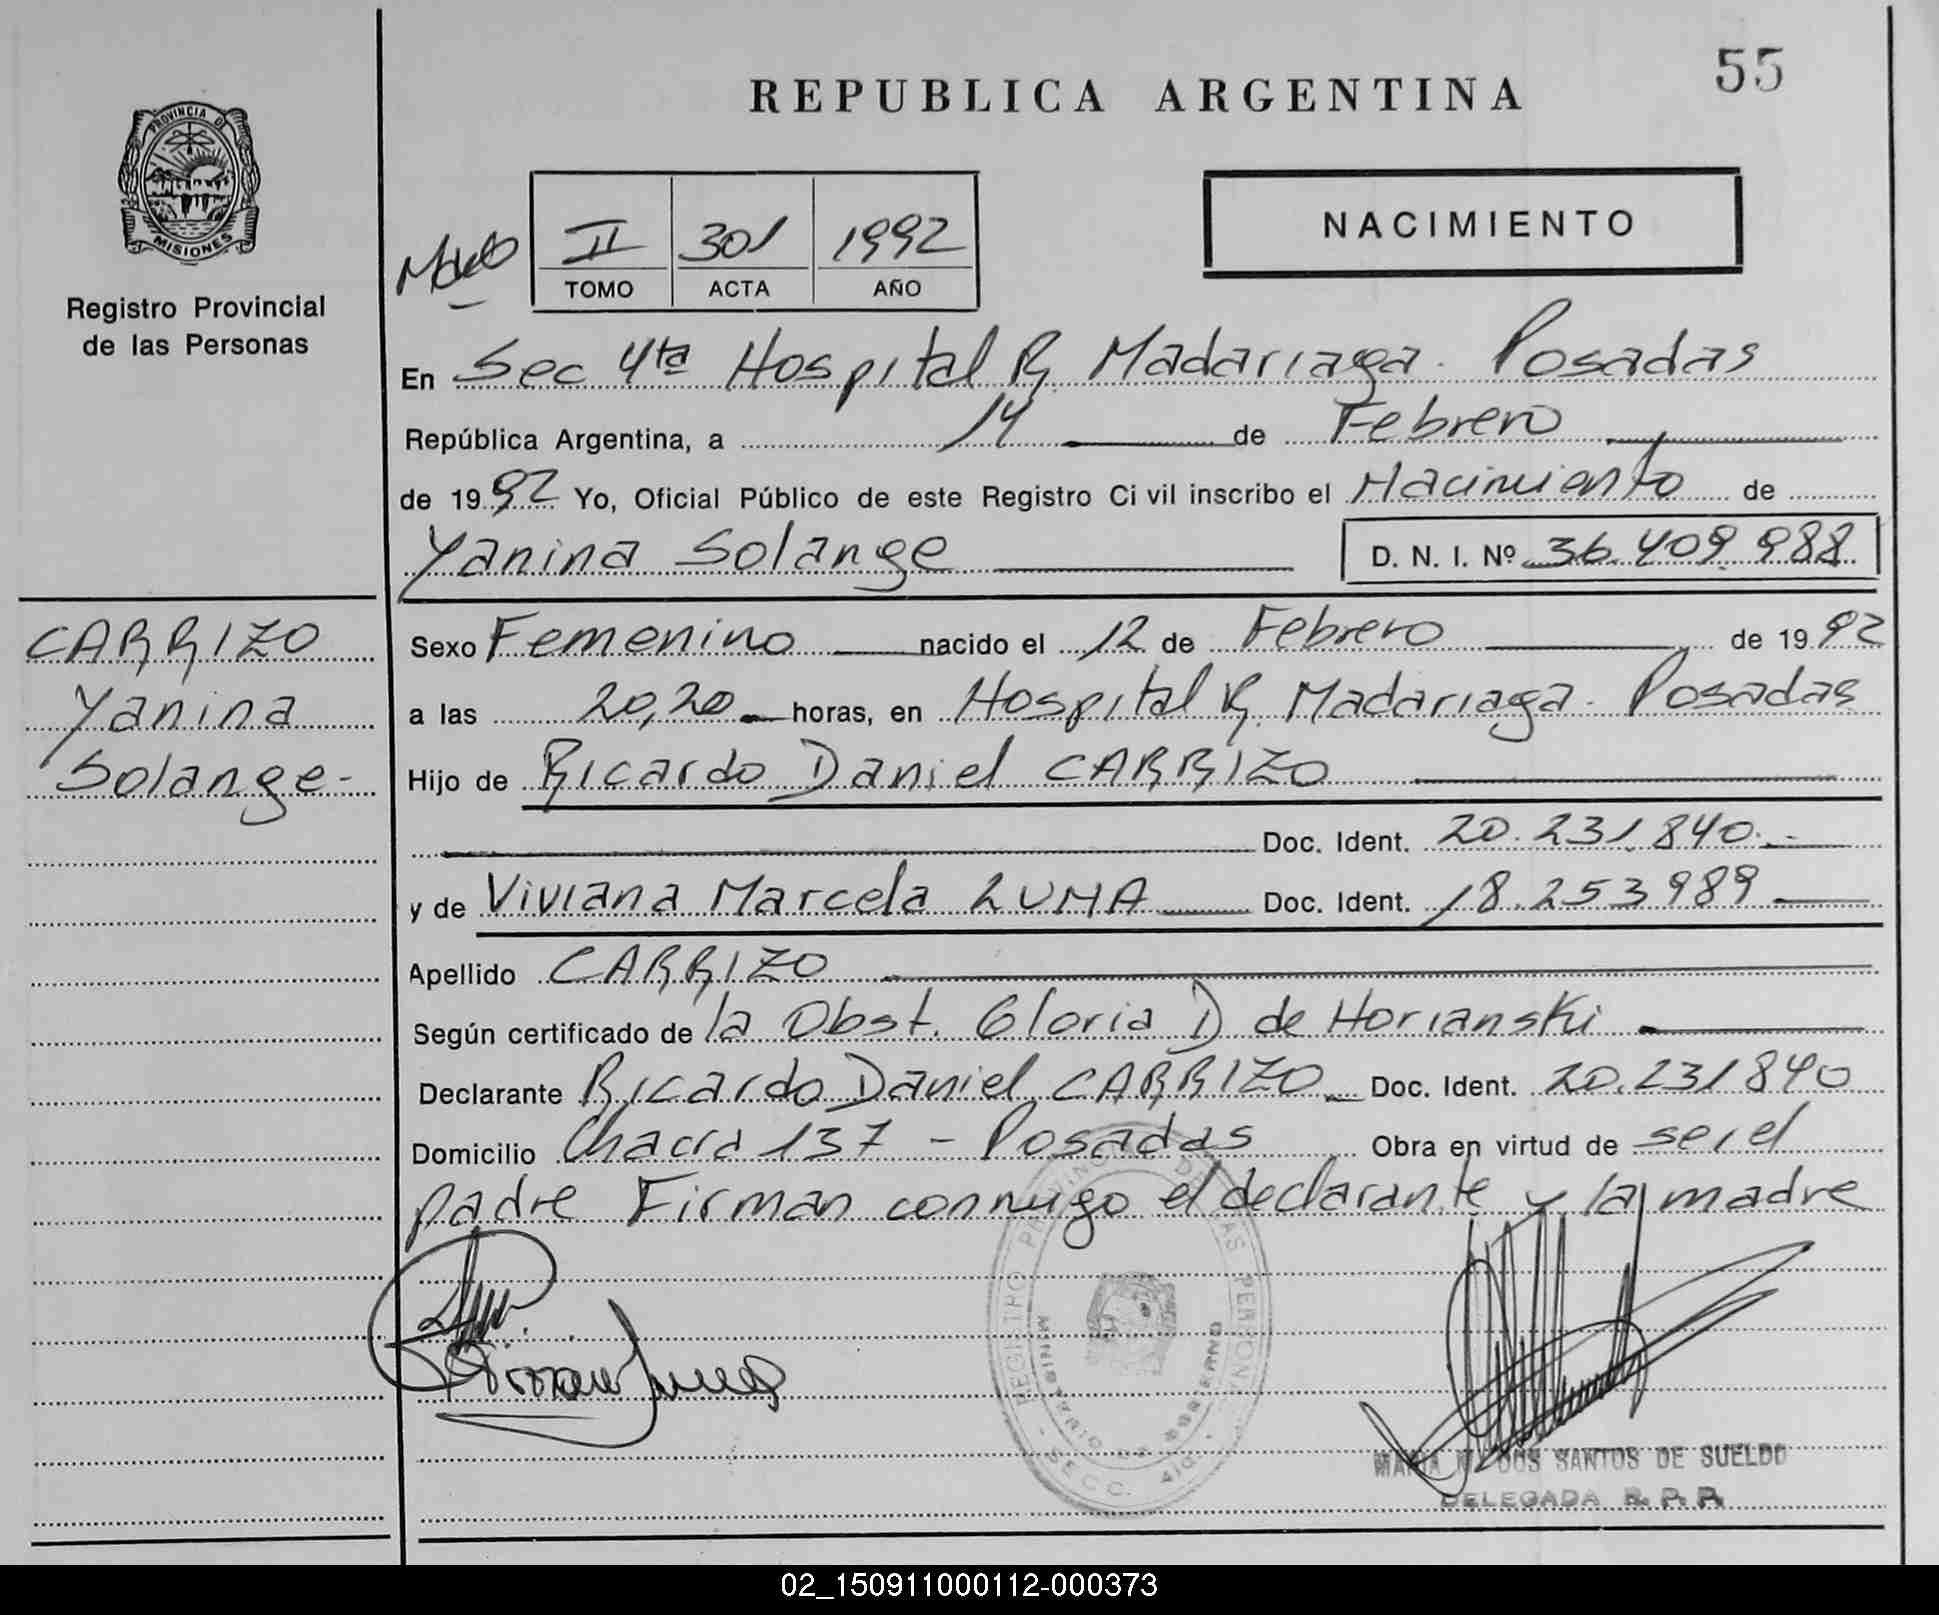 55
REPUBLICA ARGENTINA
PROVINCIA DE
MISIONES
Registro Provincial
de las Personas
NACIMIENTO
II 301 1992
TOMO ACTA AÑO
En Sec 4ta Hospital R. Madariaga. Posadas
República Argentina, a 14 de Febrero
de 1992 Yo, Oficial Público de este Registro Civil inscribo el Nacimiento de
Yanina Solange D. N. I. Nº 36.409.988
CARRIZO
Yanina
Solange-
Sexo Femenino nacido el 12 de Febrero de 1992
a las 20,20 horas, en Hospital R. Madariaga. Posadas
Hijo de Ricardo Daniel CARRIZO
Doc. Ident. 20.231.840.-
y de Viviana Marcela LUNA Doc. Ident. 18.253.989
Apellido CARRIZO
Según certificado de la Obst. Gloria D de Horianski
Declarante Ricardo Daniel CARRIZO Doc. Ident. 20.231840
Domicilio Chacra 137 - Posadas Obra en virtud de ser el
padre Firman conmigo el declarante y la madre
REGISTRO PROVINCIAL DE LAS PERSONAS
MINISTERIO DE GOBIERNO
SECC. 4ta.
DOS SANTOS DE SUELDO
DELEGADA R. P. P.
02_150911000112-000373